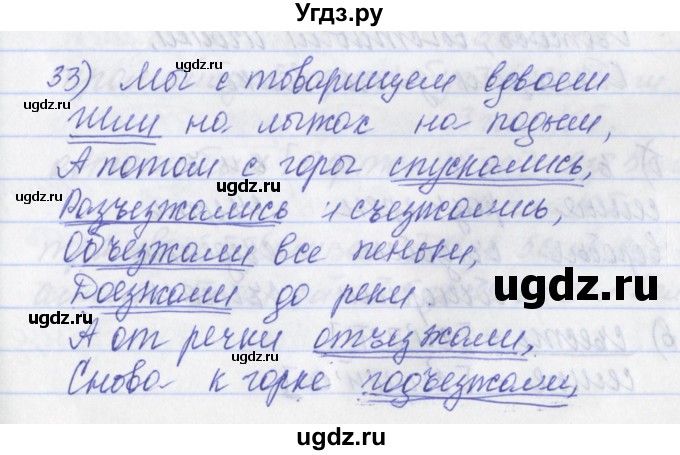 Угдз.ру
33) Мы с товарищем вдвоем
Шли на лыжах на подъем,
А потом с горы спускались,
Разъезжались и съезжались,
Объезжали все пеньки,
Доезжали до реки.
А от речки отъезжали,
Снова к горке подъезжали,
ugdz.ru
ugdz.ru
ugdz.ru
ugdz.ru
ugdz.ru
ugdz.ru
ugdz.ru
ugdz.ru
ugdz.ru
ugdz.ru
ugdz.ru
ugdz.ru